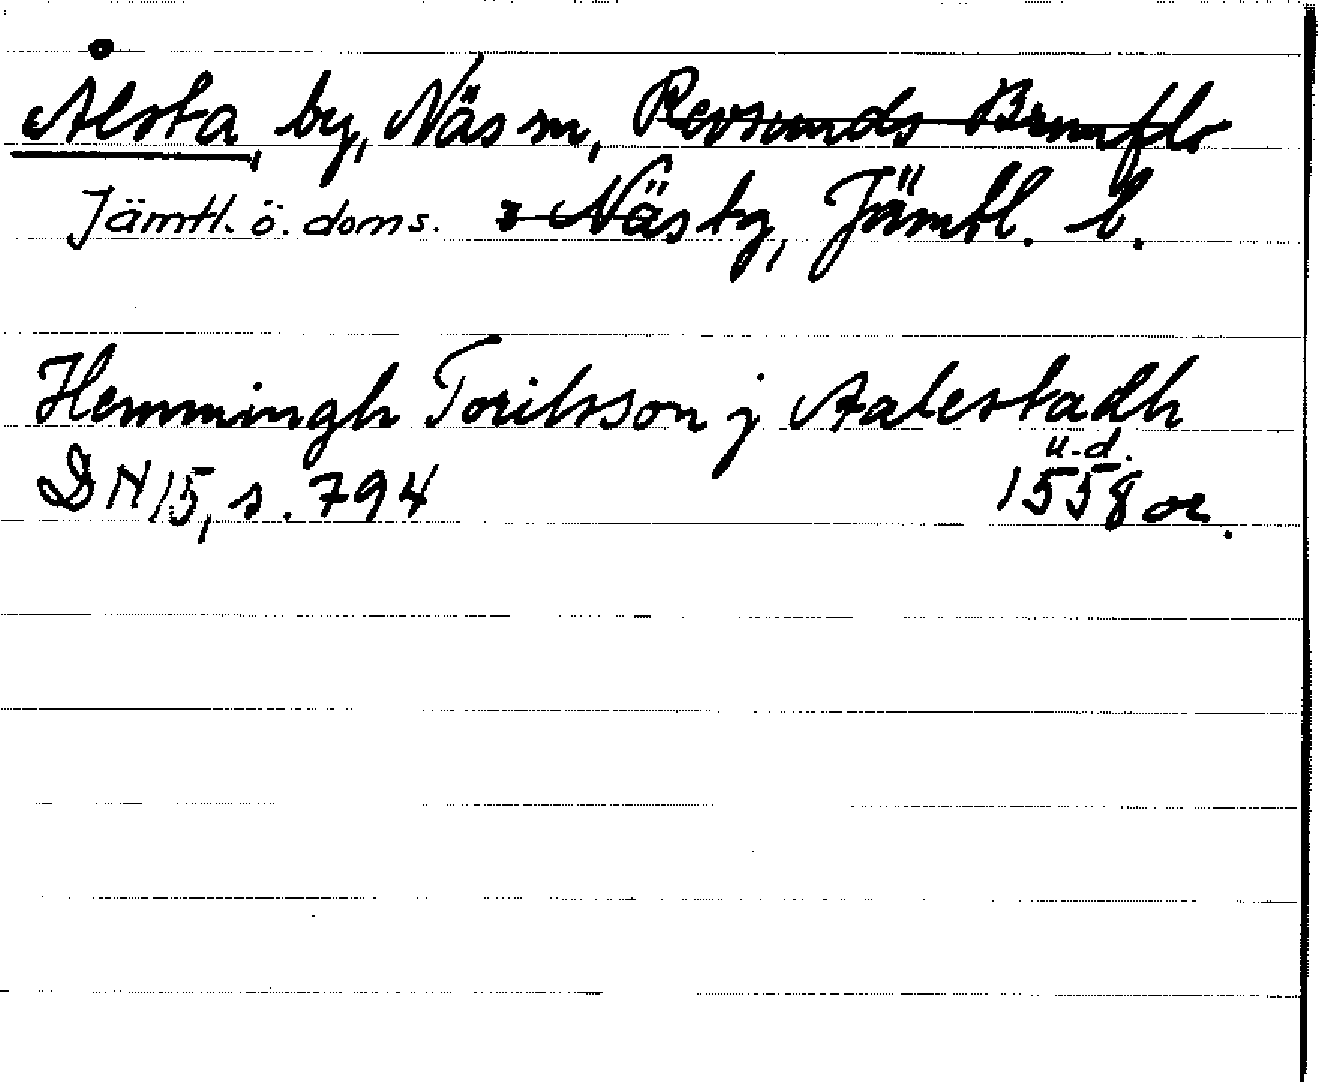 Ålsta, by, Näs sn, Revsunds Brunflo
Jämtl. ö. doms. o Näs tg, Jämtl. l.
Hemmingh Torilsson j Aalestadh
u.d.
DN 15, s. 794 1558 or.